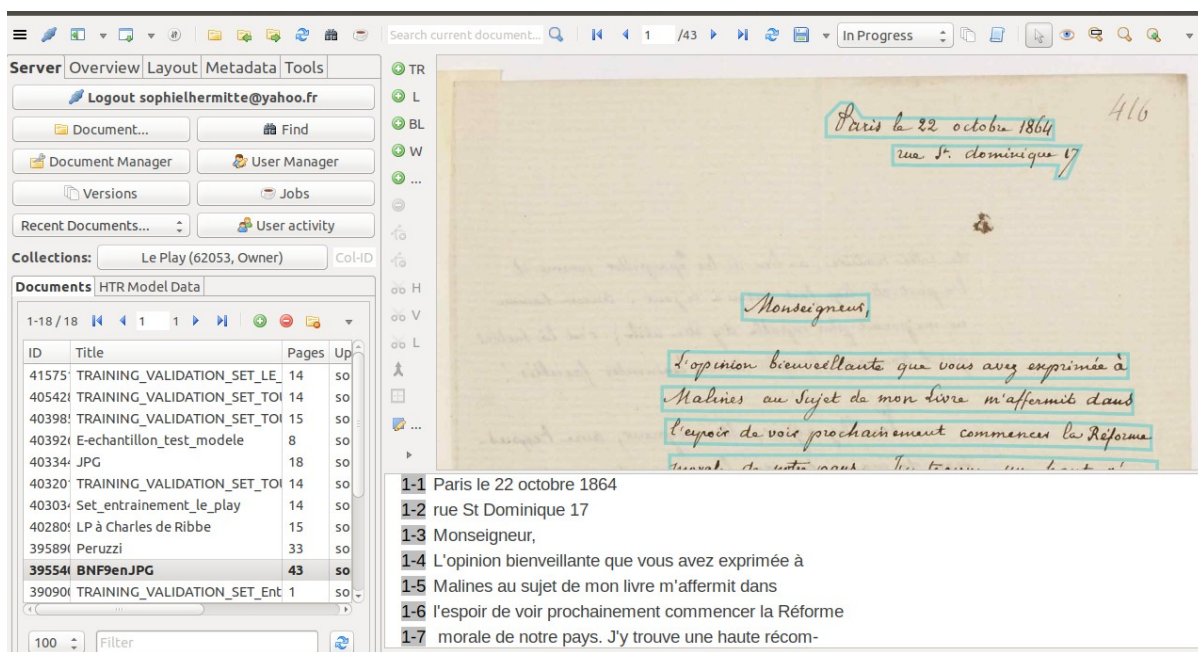 Search current document...
1
/43
In Progress
Server Overview Layout Metadata Tools
Logout sophielhermitte@yahoo.fr
Document...
Find
Document Manager
User Manager
Versions
Jobs
Recent Documents...
User activity
Collections:
Le Play (62053, Owner)
Col-ID
Documents HTR Model Data
1-18 / 18
1
1
ID Title Pages Up
41575 TRAINING_VALIDATION_SET_LE_ 14 so
405428 TRAINING_VALIDATION_SET_TOU 14 so
403985 TRAINING_VALIDATION_SET_TOU 15 so
40392 E-echantillon_test_modele 8 so
40334 JPG 18 so
40320 TRAINING_VALIDATION_SET_TOU 14 so
40303 Set_entrainement_le_play 14 so
40280 LP à Charles de Ribbe 15 so
39589 Peruzzi 33 so
39554 BNF9enJPG 43 so
39090 TRAINING_VALIDATION_SET_Ent 1 so
100
Filter
TR
L
BL
W
...
H
V
L
...
416
Paris le 22 octobre 1864
rue St. dominique 17
Monseigneur,
L'opinion bienveillante que vous avez exprimée à
Malines au Sujet de mon Livre m'affermit dans
l'espoir de voir prochainement commencer la Réforme
morale de notre pays. J'y trouve une haute récom-
1-1 Paris le 22 octobre 1864
1-2 rue St Dominique 17
1-3 Monseigneur,
1-4 L'opinion bienveillante que vous avez exprimée à
1-5 Malines au sujet de mon livre m'affermit dans
1-6 l'espoir de voir prochainement commencer la Réforme
1-7 morale de notre pays. J'y trouve une haute récom-